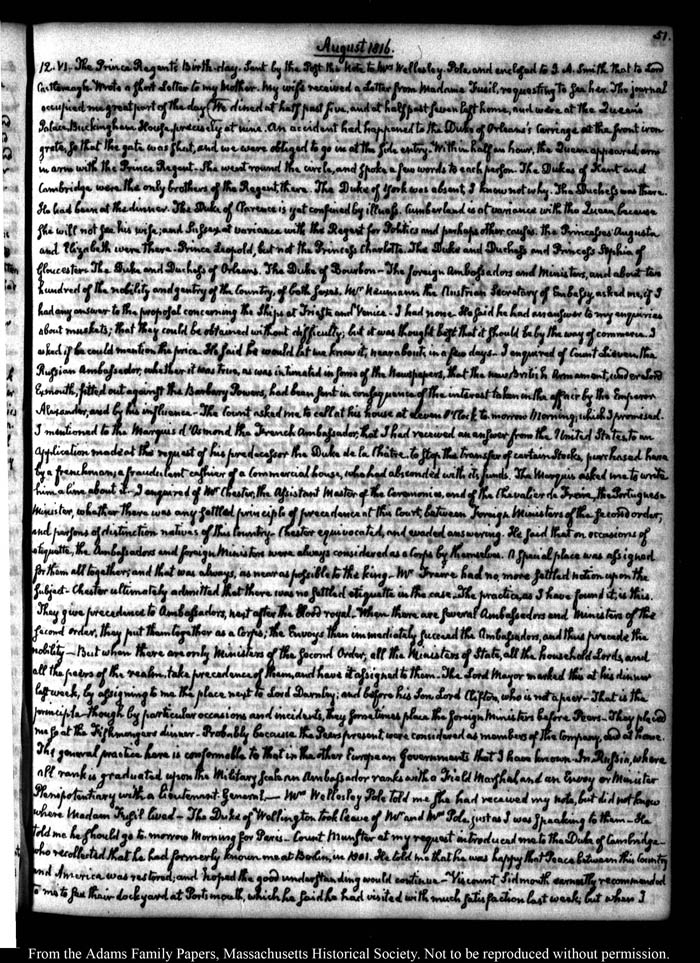 51.
August 1816.
12. VI. The Prince Regent's Birth-day. Sent by the Post the Note to Mrs Wellesley Pole, and enclosed to J. A. Smith that to Lord
Castlereagh. Wrote a short Letter to my Mother. My wife received a Letter from Madame Fusil, requesting to see her. The journal
occupied me great part of the day. We dined at half past five, and at half past seven left home, and were at the Queen's
Palace, Buckingham House, precisely at nine. An accident had happened to the Duke of Orleans's Carriage at the front iron
grate, so that the gate was shut, and we were obliged to go in at the side entry. Within half an hour, the Queen appeared, arm
in arm with the Prince Regent. She went round the circle, and spoke a few words to each person. The Dukes of Kent and
Cambridge were the only brothers of the Regent, there. The Duke of York was absent, I know not why. The Duchess was there.
He had been at the dinner. The Duke of Clarence is yet confined by illness. Cumberland is at variance with the Queen because
She will not see his wife; and Sussex at variance with the Regent for Politics and perhaps other causes. The Princesses Augusta
and Elizabeth were there. Prince Leopold, but not the Princess Charlotte. The Duke and Duchess and Princess Sophia of
Gloucester. The Duke and Duchess of Orleans. The Duke of Bourbon. The foreign Ambassadors and Ministers, and about two
hundred of the nobility and gentry of the Country, of both sexes. Mr Neumann the Austrian Secretary of Embassy, asked me, if I
had any answer to the proposal concerning the Ships at Trieste and Venice. I had none. He said he had an answer to my enquiries
about muskets; that they could be obtained without difficulty; but it was thought best that it should be by the way of commerce. I
asked if he could mention the price. He said he would let me know it, near about, in a few days. I enquired of Count Lieven, the
Russian Ambassador, whether it was true, as was intimated in some of the Newspapers, that the new British Armament, under Lord
Exmouth, fitted out against the Barbary Powers, had been sent in consequence of the interest taken in the affair by the Emperor
Alexander, and by his influence. The Count asked me to call at his house at eleven O'Clock to morrow Morning, which I promised.
I mentioned to the Marquis d'Osmond the French Ambassador, that I had received an answer from the United States, to an
application made at the request of his predecessor the Duke de la Châtre, to stop the transfer of certain Stocks, purchased here
by a frenchman, a fraudulent cashier of a commercial house, who had absconded with its funds. The Marquis asked me to write
him a line about it. I enquired of Mr Chester, the Assistant Master of the Ceremonies, and of the Chevalier de Freire, the Portuguese
Minister, whether there was any settled principle of precedence at this Court, between foreign Ministers of the second order,
and persons of distinction natives of this Country. Chester equivocated, and evaded answering. He said that on occasions of
etiquette, the Ambassadors and foreign Ministers were always considered as a Corps by themselves. A special place was assigned
for them all together; and that was always, as near as possible to the king. Mr Freire had no more settled notion upon the
Subject. Chester ultimately admitted that there was no settled etiquette in the case. The practice, as I have found it, is this.
They give precedence to Ambassadors, next after the blood royal. When there are several Ambassadors and Ministers of the
Second order, they put them together as a Corps; the Envoys then immediately succeed the Ambassadors, and thus precede the
nobility. But when there are only Ministers of the Second Order, all the Ministers of State, all the household Lords, and
all the peers of the realm, take precedence of them, and have it assigned to them. The Lord Mayor marked this at his dinner
last week, by assigning to me the place next to Lord Darnley; and before his Son Lord Clifton, who is not a peer. That is the
principle. Though by particular occasions and incidents, they sometimes place the foreign Ministers before Peers. They placed
me so at the Fishmongers dinner. Probably because the Peers present, were considered as members of the Company, and at home.
The general practice here is conformable to that in the other European Governments that I have known. In Russia, where
all rank is graduated upon the Military scale an Ambassador ranks with a Field Marshal and an Envoy or Minister
Plenipotentiary with a Lieutenant General. Mrs Wellesley Pole told me she had received my note, but did not know
where Madam Fusil lived. The Duke of Wellington took leave of Mr and Mrs Pole, just as I was speaking to them. He
told me he should go to morrow Morning for Paris. Count Munster at my request introduced me to the Duke of Cambridge
who recollected that he had formerly known me at Berlin, in 1801. He told me that he was happy that Peace between this Country
and America was restored; and hoped the good understanding would continue. Viscount Sidmouth earnestly recommended
to me to see their dockyard at Portsmouth, which he said he had visited with much satisfaction last week; but when I
From the Adams Family Papers, Massachusetts Historical Society. Not to be reproduced without permission.